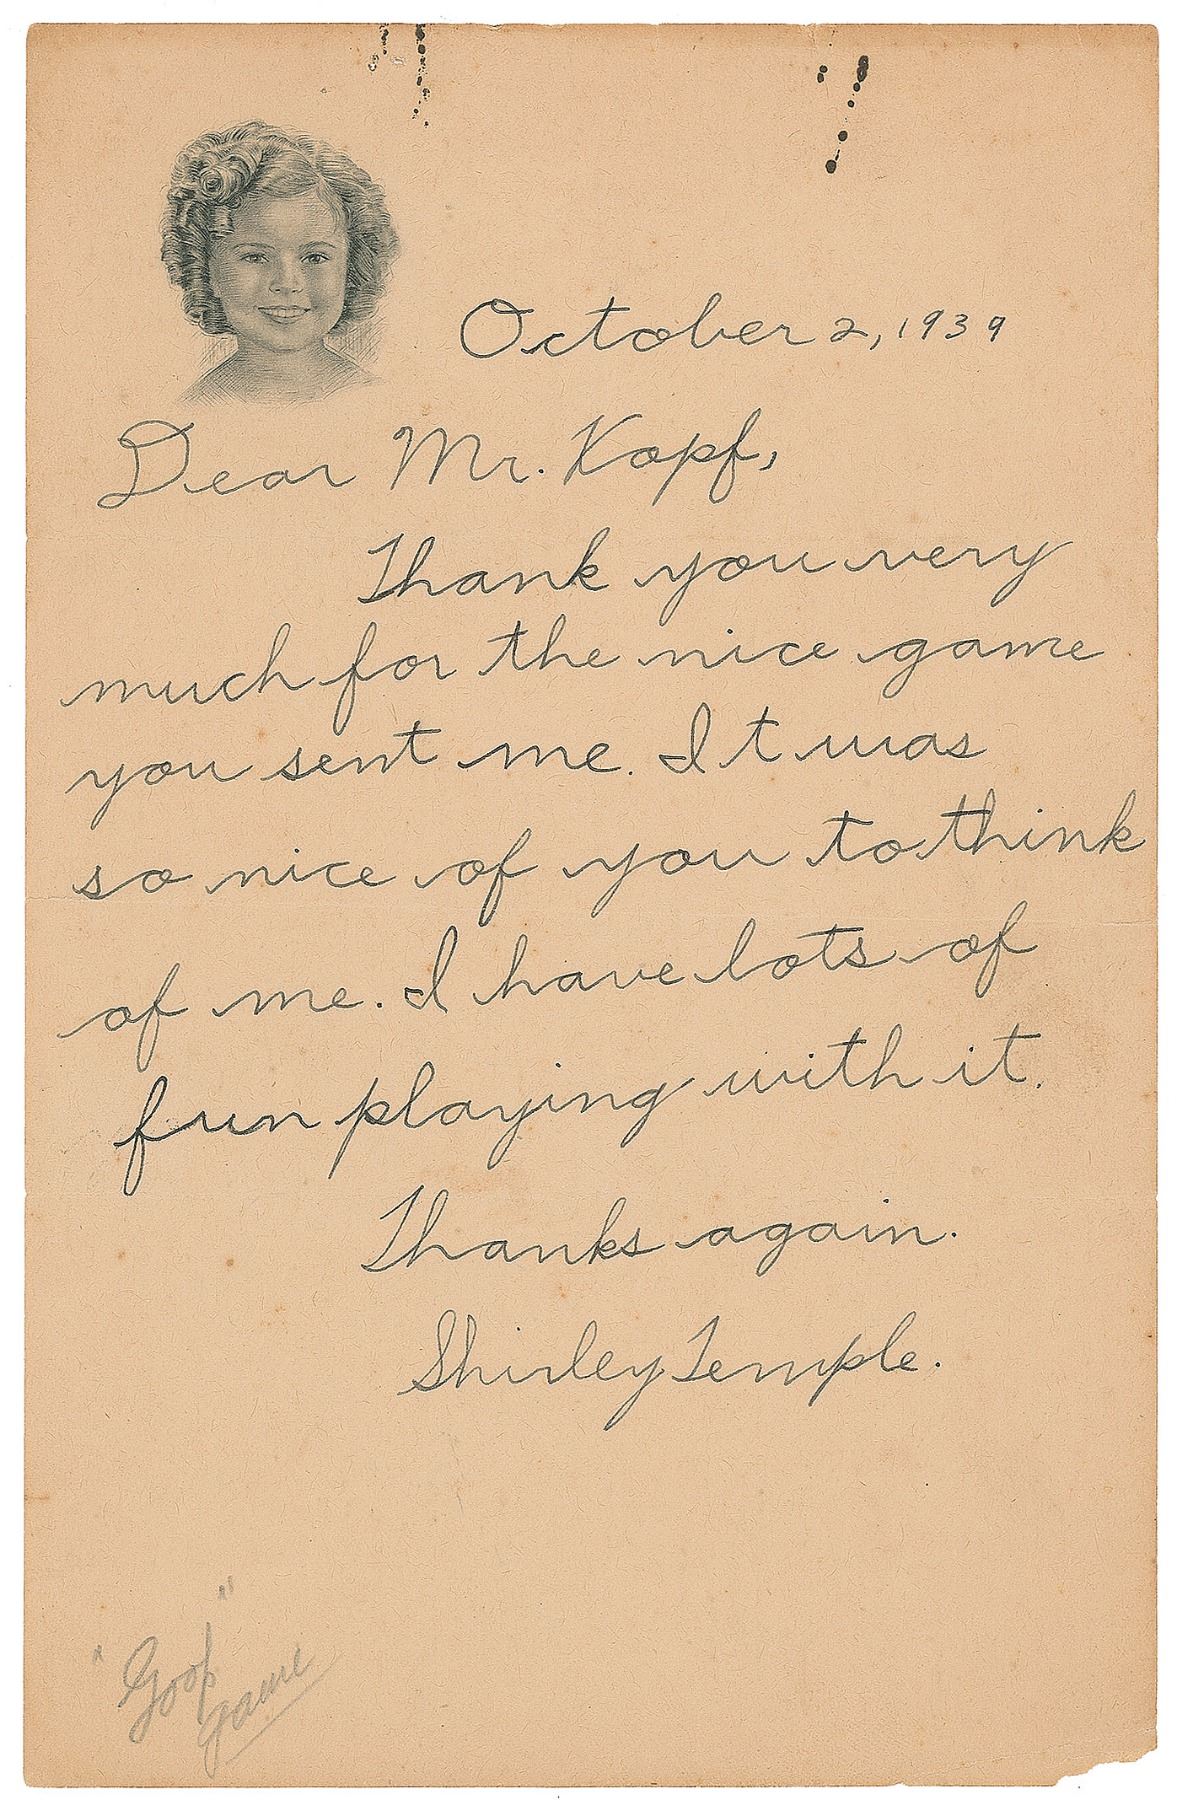 October 2, 1939
Dear Mr. Kopf,
Thank you very
much for the nice game
you sent me. It was
so nice of you to think
of me. I have lots of
fun playing with it.
Thanks again.
Shirley Temple.
"Goop"
game